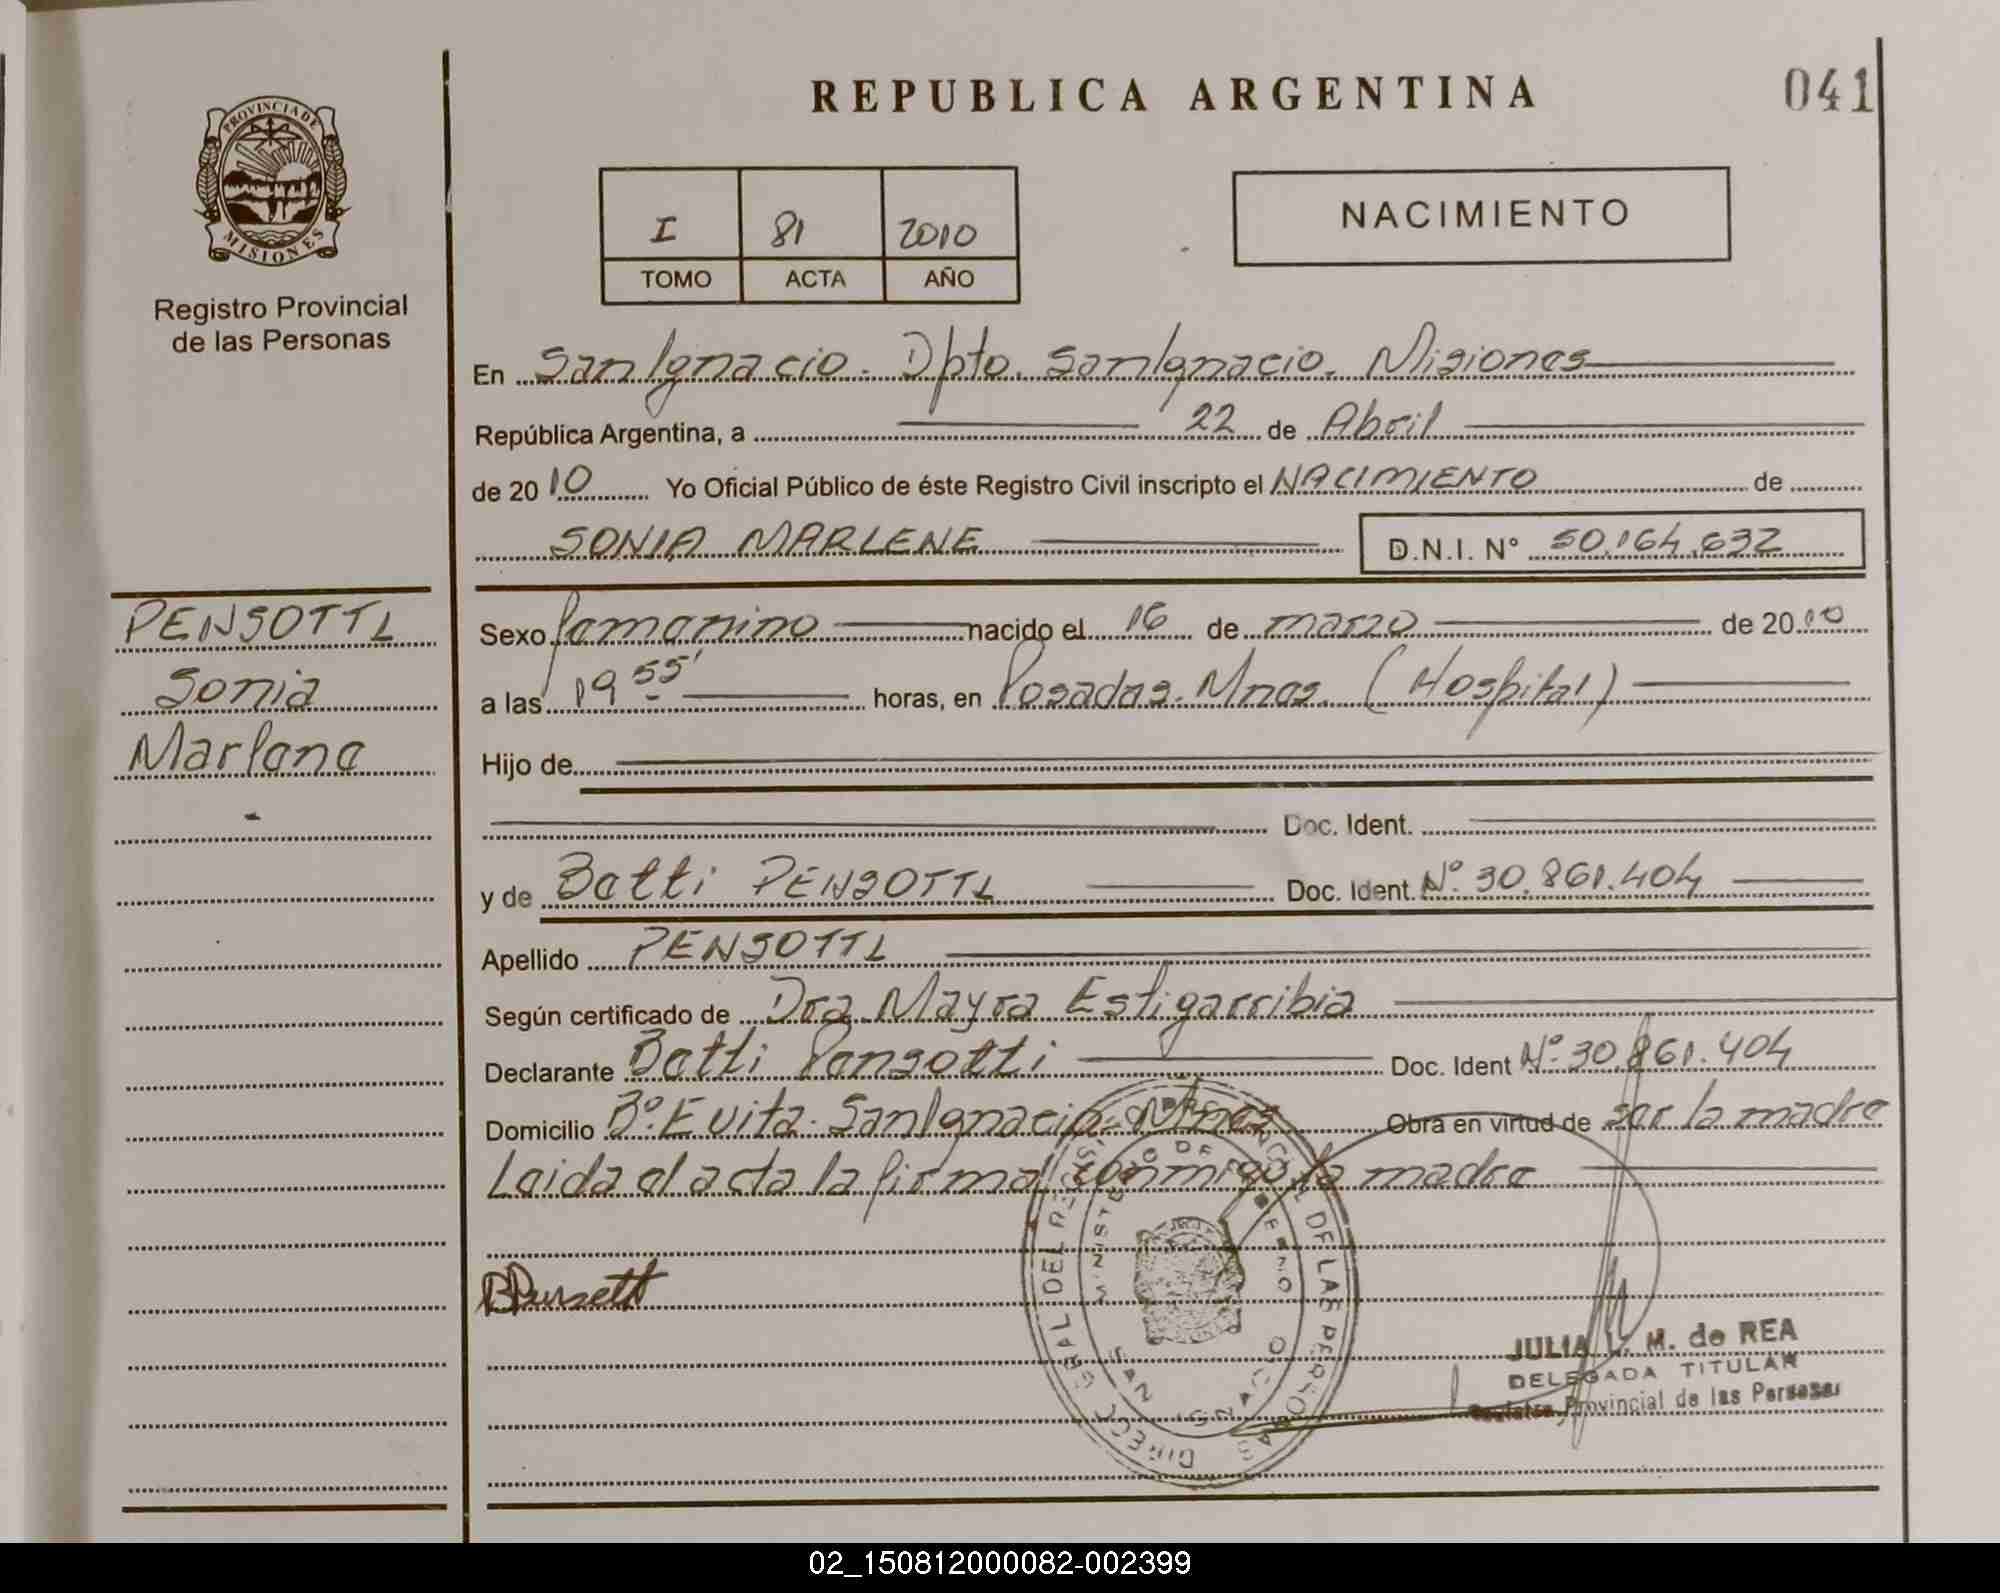 REPUBLICA ARGENTINA
041
PROVINCIA DE
MISIONES
Registro Provincial
de las Personas
I 81 2010
TOMO ACTA AÑO
NACIMIENTO
En San Ignacio. Dpto. San Ignacio. Misiones
República Argentina, a 22 de Abril
de 2010 Yo Oficial Público de éste Registro Civil inscripto el NACIMIENTO de
SONIA MARLENE D.N.I. N° 50.164.632
PENSOTTI
Sonia
Marlene
-
Sexo femenino nacido el 16 de marzo de 2010
a las 19 55' horas, en Posadas. Mnes. (Hospital)
Hijo de
Doc. Ident.
y de Betti PENSOTTI Doc. Ident. N° 30.861.404
Apellido PENSOTTI
Según certificado de Dra Mayra Estigarribia
Declarante Betti Pensotti Doc. Ident N° 30.861.404
Domicilio B° Evita. San Ignacio. Mnes Obra en virtud de ser la madre
Leida el acta la firma conmigo la madre
JULIA M. de REA
DELEGADA TITULAR
Provincial de las Personas
02_150812000082-002399